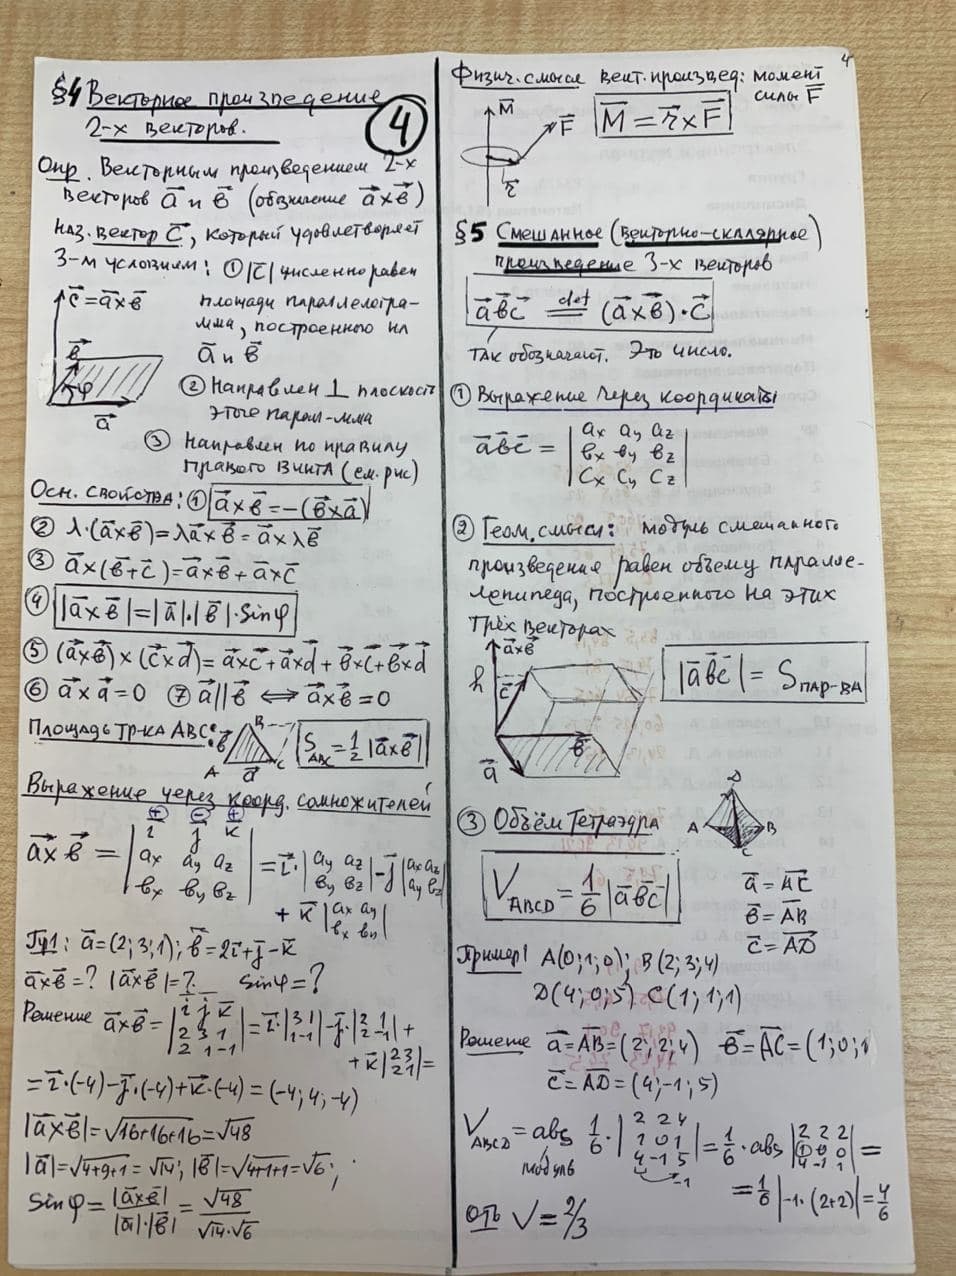 §4 Векторное произведение
2-х векторов.
4
Опр. Векторным произведением 2-х
векторов a⃗ и b⃗ (обозначение a⃗×b⃗)
наз. вектор c⃗, который удовлетворяет
3-м условиям: ① |c⃗| численно равен
площади параллелогра-
мма, построенного на
a⃗ и b⃗
c⃗=a⃗×b⃗
b⃗
φ
a⃗
② Направлен ⊥ плоскости
этого парал-мма
③ Направлен по правилу
правого винта (см. рис)
Осн. свойства: ① a⃗×b⃗=-(b⃗×a⃗)
② λ·(a⃗×b⃗)=λa⃗×b⃗=a⃗×λb⃗
③ a⃗×(b⃗+c⃗)=a⃗×b⃗+a⃗×c⃗
④ |a⃗×b⃗|=|a⃗|·|b⃗|·sinφ
⑤ (a⃗×b⃗)×(c⃗×d⃗)=a⃗×c⃗+a⃗×d⃗+b⃗×c⃗+b⃗×d⃗
⑥ a⃗×a⃗=0 ⑦ a⃗||b⃗ ⟺ a⃗×b⃗=0
Площадь тр-ка ABC: b⃗ B A a⃗ C S ABC = 1/2 |a⃗×b⃗|
Выражение через коорд. сомножителей
⊕ ⊖ ⊕
i⃗ j⃗ k⃗
a⃗×b⃗ = | ax ay az | = i⃗·| ay az | - j⃗ | ax az |
bx by bz | by bz | ay bz
+ k⃗ | ax ay |
bx by
Пр1: a⃗=(2;3;1); b⃗=2i⃗+j⃗-k⃗
a⃗×b⃗=? |a⃗×b⃗|=? sinφ=?
Решение a⃗×b⃗= | i j k | = i⃗·| 3 1 | - j⃗·| 2 1 | +
2 3 1 | 1 -1 | 2 -1
2 1 -1
+ k⃗ | 2 3 | =
2 1
= i⃗·(-4)-j⃗·(-4)+k⃗·(-4)=(-4;4;-4)
|a⃗×b⃗|=√16+16+16=√48
|a⃗|=√4+9+1=√14; |b⃗|=√4+1+1=√6;
sinφ= |a⃗×b⃗| / |a⃗|·|b⃗| = √48 / √14·√6
4
Физич. смысл вект. произвед: момент
силы F⃗
M⃗
F⃗
r⃗
M⃗=r⃗×F⃗
§5 Смешанное (векторно-скалярное)
произведение 3-х векторов
a⃗b⃗c⃗ def = (a⃗×b⃗)·c⃗
так обозначают. Это число.
① Выражение через координаты
a⃗b⃗c⃗ = | ax ay az |
bx by bz
cx cy cz
② Геом. смысл: модуль смешанного
произведения равен объему паралле-
лепипеда, построенного на этих
трёх векторах
a⃗×b⃗
h
c⃗
b⃗
a⃗
|a⃗b⃗c⃗| = S пар-да
③ Объём тетраэдра
D
A B
C
V ABCD = 1/6 |a⃗b⃗c⃗|
a⃗=AC
b⃗=AB
c⃗=AD
Пример1 A(0;1;0); B(2;3;4)
D(4;0;5) C(1;1;1)
Решение a⃗=AB=(2;2;4) b⃗=AC=(1;0;1
c⃗=AD=(4;-1;5)
V ABCD = abs 1/6 · | 2 2 4 | = 1/6 · abs | 2 2 2 | =
1 0 1 | 1 0 0
4 -1 5 | 4 -1 1
модуль
-1
= 1/6 |-1·(2+2)| = 4/6
Отв V=2/3